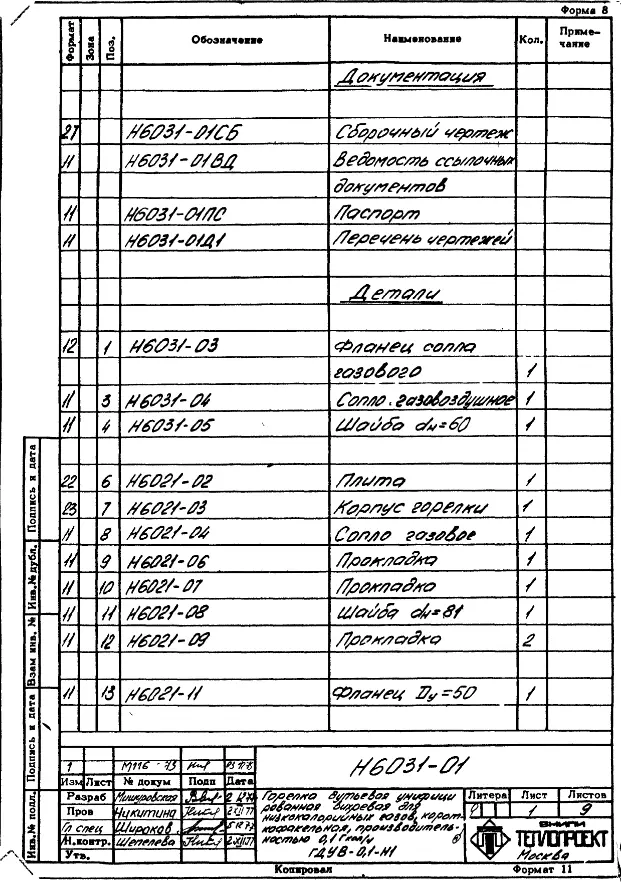 Форма 8
Формат Зона Поз. Обозначение Наименование Кол. Приме-
чание
Документация
27 Н6031-01СБ Сборочный чертеж
11 Н6031-01ВД Ведомость ссылочных
документов
11 Н6031-01ПС Паспорт
11 Н6031-01Д1 Перечень чертежей
Детали
12 1 Н6031-03 Фланец сопла
газового 1
11 3 Н6031-04 Сопло газовоздушное 1
11 4 Н6031-05 Шайба dн=60 1
22 6 Н6021-02 Плита 1
23 7 Н6021-03 Корпус горелки 1
11 8 Н6021-04 Сопло газовое 1
11 9 Н6021-06 Прокладка 1
11 10 Н6021-07 Прокладка 1
11 11 Н6021-08 Шайба dн=81 1
11 12 Н6021-09 Прокладка 2
11 13 Н6021-11 Фланец Dу=50 1
Подпись и дата
Инв.№ дубл.
Взам инв. №
Подпись и дата
Инв.№ подл.
1
Изм Лист № докум Подп Дата
Разраб
Пров Никитина
Гл спец Широков
Н.контр. Шепелева
Утв.
Н6031-01
Горелка дутьевая унифици
рованная вихревая для
низкокалорийных газов, корот
кофакельная, производитель-
ностью 0,1 Гкал/ч
ГДУВ-0,1-Н1
Литера Лист Листов
1 9
ВНИПИ
ТЕПЛОПРОЕКТ
Москва
Копировал Формат 11